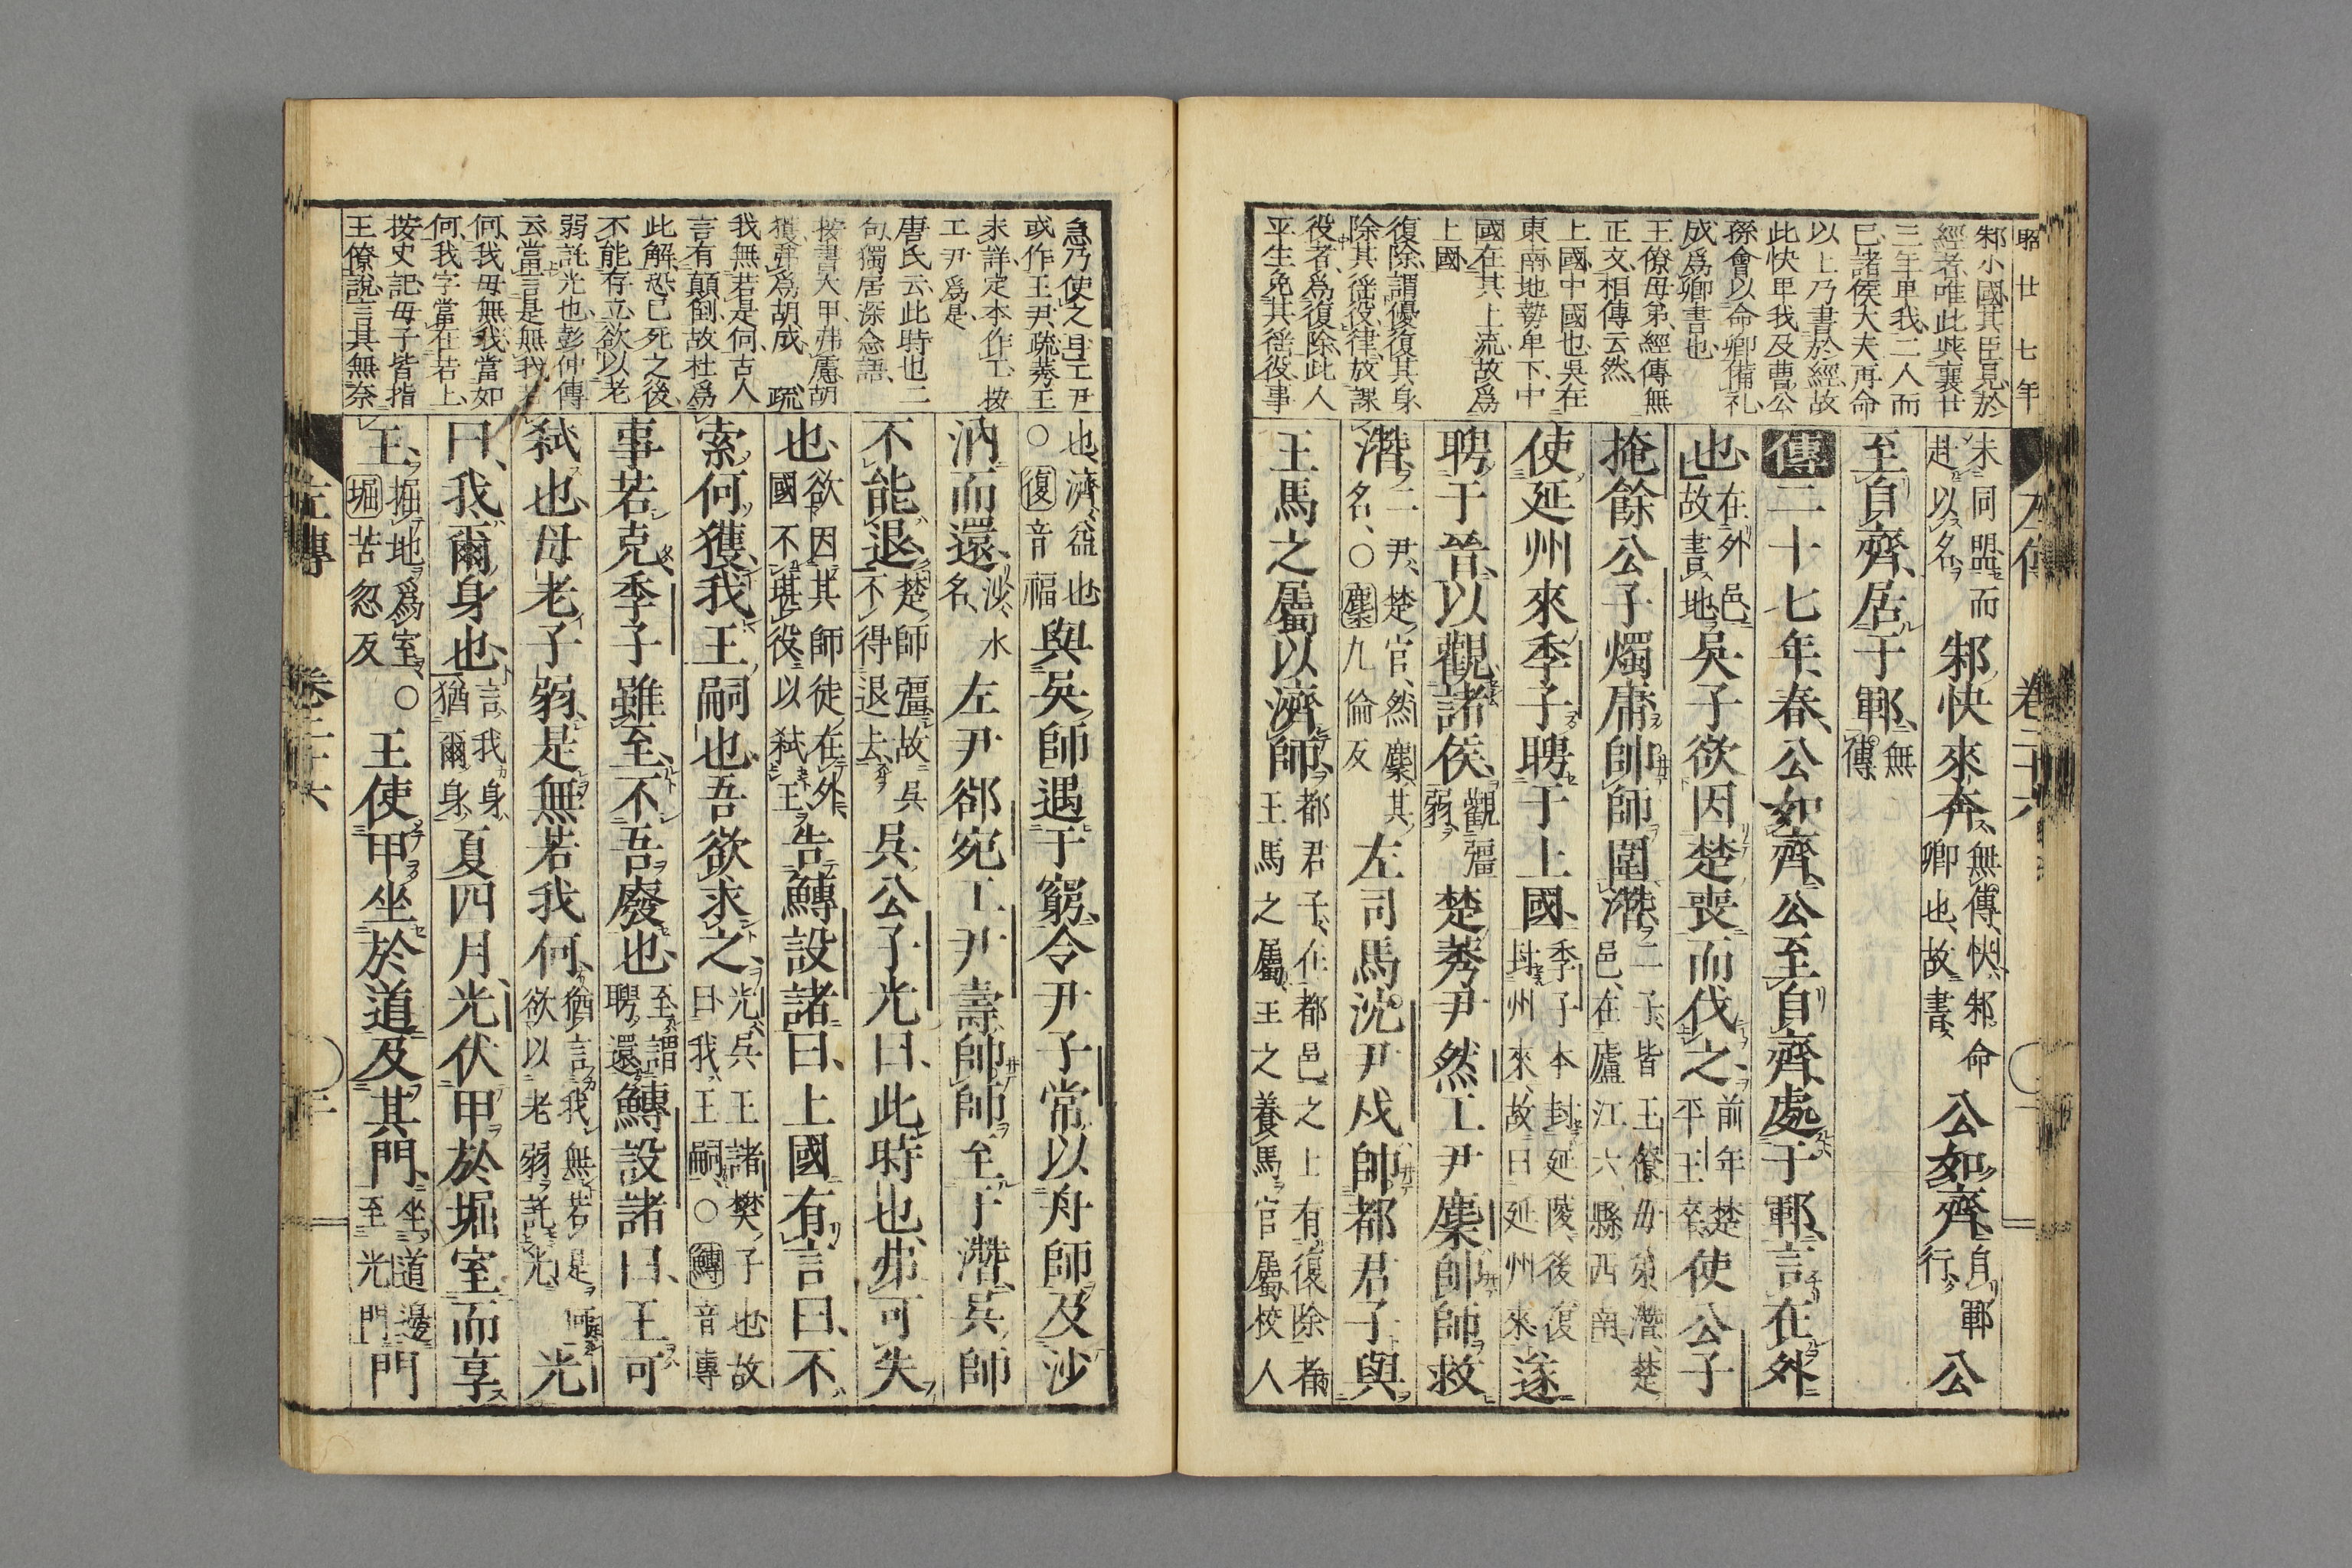 昭廿七年
邾小國其臣見於
經者唯此與襄廿
三年畀我二人而
已諸侯大夫再命
以上乃書於經故
此快畀我及曹公
孫會以命卿備礼
成爲卿書也
王僚母弟經傳無
正文相傳云然
上國中國也吳在
東南地勢卑下中
國在其上流故爲
上國
復除謂優復其身
除其徭役律放課
役者爲復除此人
平生免其徭役事
左傳 卷二十六
未同盟而赴以名邾快來奔無傳快邾命卿也故書公如齊自鄆行公
至自齊居于鄆無傳
傳二十七年春公如齊公至自齊處于鄆言在外
也在外邑故書地吳子欲因楚喪而伐之前年楚平王卒使公子
掩餘公子燭庸帥師圍潛二子皆王僚母弟潛楚邑在廬江六縣西南
使延州來季子聘于上國季子本封延陵後復封州來故曰延州來遂
聘于晉以觀諸侯觀彊弱楚莠尹然工尹麇帥師救
潛二尹楚官然麇其名○麇九倫反左司馬沈尹戌帥都君子與
王馬之屬以濟師都君子在都邑之士有復除者王馬之屬王之養馬官屬校人
急乃使之且工尹
或作王尹疏莠王
未詳定本作工按
工尹爲是
唐氏云此時也二
句獨居深念語
按書大甲弗慮胡
獲弗爲胡成 疏
我無若是何古人
言有顛倒故杜爲
此解恐己死之後
不能存立欲以老
弱託光也彭仲傳
云當言是無我若
何我毋無我當如
何我字當在若上
按史記毋子皆指
王僚說言其無奈
也濟益也○復音福與吳師遇于窮令尹子常以舟師及沙
汭而還沙水名左尹郤宛工尹壽帥師至于潛吳師
不能退楚師彊故吳不得退去吳公子光曰此時也弗可失
也欲因其師徒在外國不堪役以弒王告鱄設諸曰上國有言曰不
索何獲我王嗣也吾欲求之光吳王諸樊子也故曰我王嗣○鱄音專
事若克季子雖至不吾廢也至謂聘還鱄設諸曰王可
弒也母老子弱是無若我何猶言我無若是何欲以老弱託光光
曰我爾身也言我身猶爾身夏四月光伏甲於堀室而享
王掘地爲室○堀苦忽反王使甲坐於道及其門坐道邊至光門門
左傳 卷二十六 二